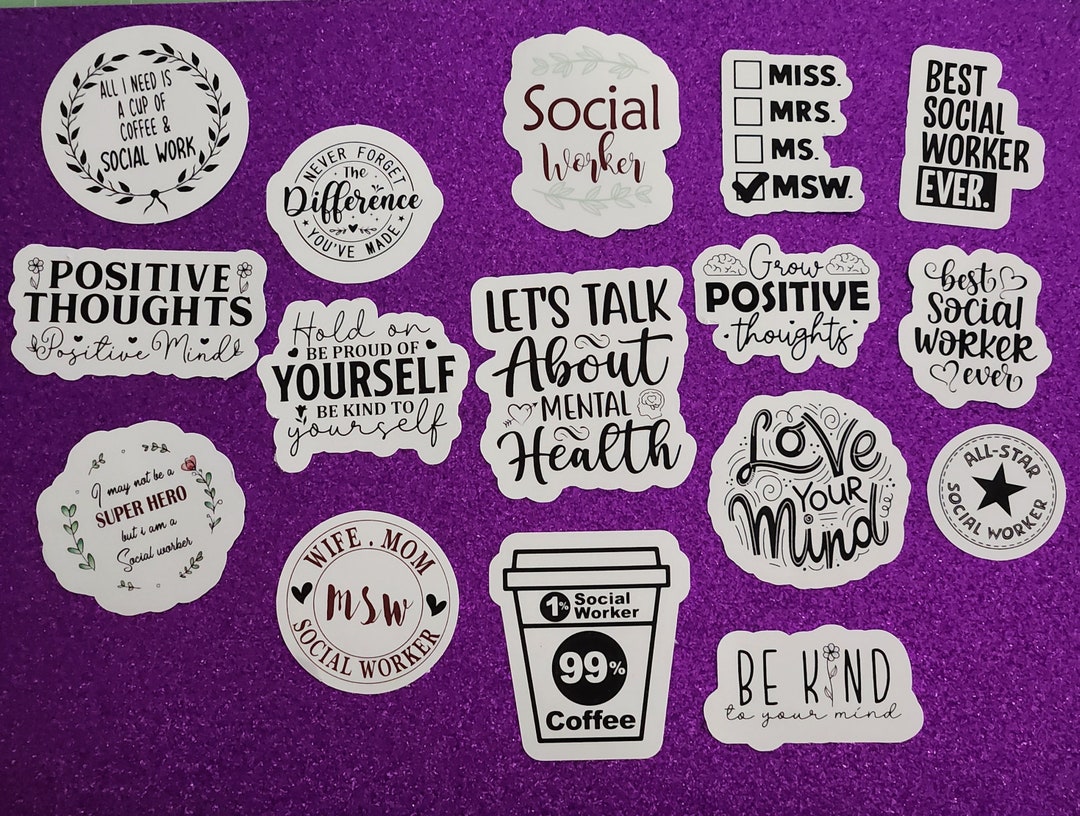 ALL I NEED IS
A CUP OF
COFFEE &
SOCIAL WORK
NEVER FORGET
The
Difference
YOU'VE MADE
Social
Worker
MISS.
MRS.
MS.
MSW.
BEST
SOCIAL
WORKER
EVER.
POSITIVE
THOUGHTS
Positive Mind
Hold on
BE PROUD OF
YOURSELF
BE KIND TO
yourself
LET'S TALK
About
MENTAL
Health
Grow
POSITIVE
thoughts
best
Social
WORKER
ever
I may not be a
SUPER HERO
but i am a
Social worker
WIFE . MOM
MSW
SOCIAL WORKER
1% Social
Worker
99%
Coffee
LOVE
YOUR
Mind
ALL-STAR
SOCIAL WORKER
BE KIND
to your mind